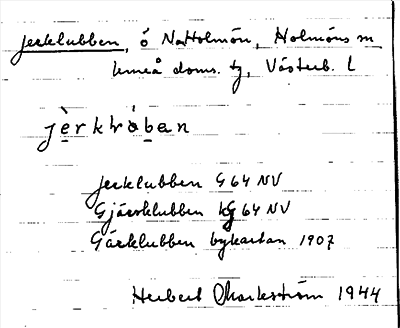 Jerklubben, ö NaHolmön, Holmöns sn
Umeå doms. tg, Västerb. l
jèrklròban
Jerklubben G64 NV
Gjärsklubben kg 64 NV
Gärklubben bykartan 1907
Herbert Markström 1944